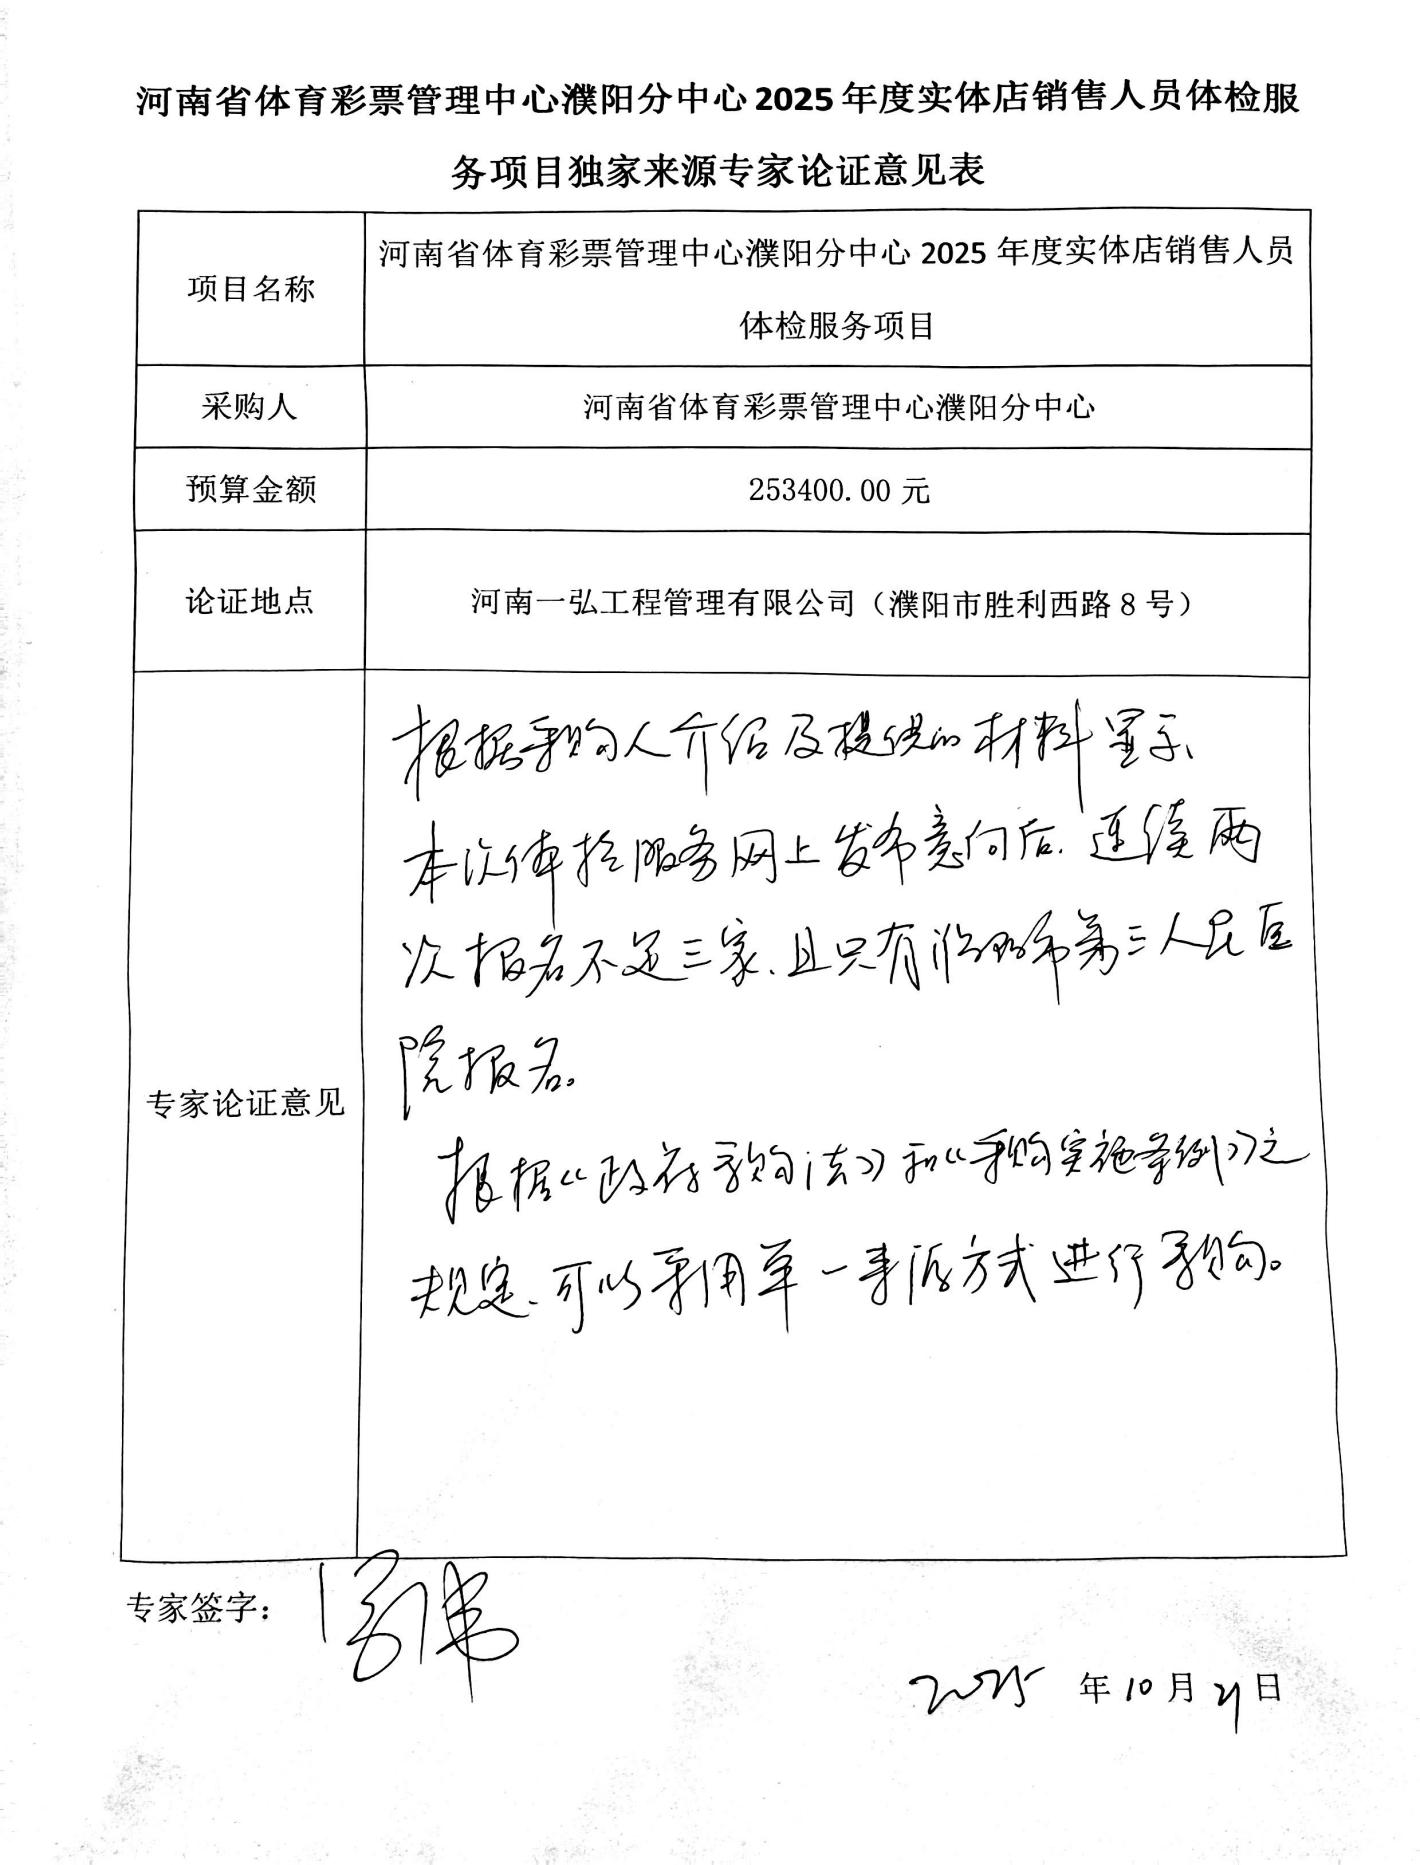 河南省体育彩票管理中心濮阳分中心 2025 年度实体店销售人员体检服
务项目独家来源专家论证意见表
项目名称
河南省体育彩票管理中心濮阳分中心 2025 年度实体店销售人员
体检服务项目
采购人
河南省体育彩票管理中心濮阳分中心
预算金额
253400.00 元
论证地点
河南一弘工程管理有限公司（濮阳市胜利西路 8 号）
专家论证意见
根据采购人介绍及提供的材料显示、
本次体检服务网上发布意向后、连续两
次报名不足三家、且只有濮阳市第三人民医
院报名。
根据《政府采购法》和《采购实施条例》之
规定、可以采用单一来源方式进行采购。
专家签字：
2025 年 10 月 21 日